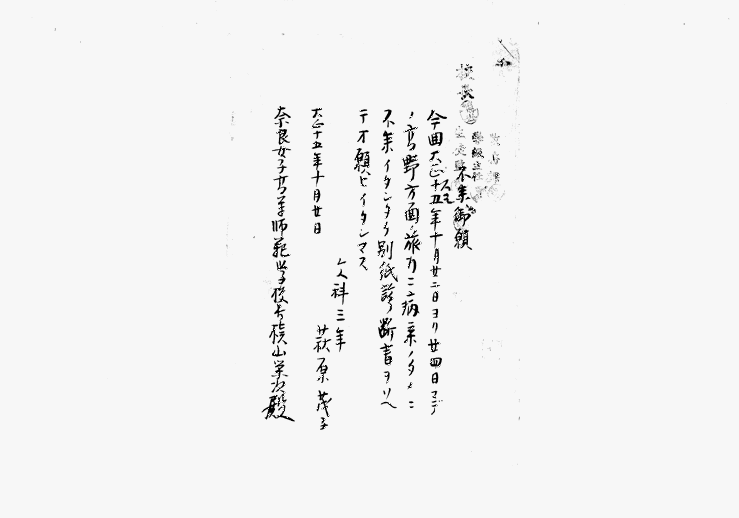 不参御願
今回大正十五年十月廿二日ヨリ廿四日マデ
ノ高野方面ノ旅行ニハ病気ノタメニ
不参イタシタク別紙診断書ヲソヘ
テオ願ヒイタシマス
文科三年
萩原茂子
大正十五年十月廿日
奈良女子高等師範学校長槙山栄次殿
校長
学級主任